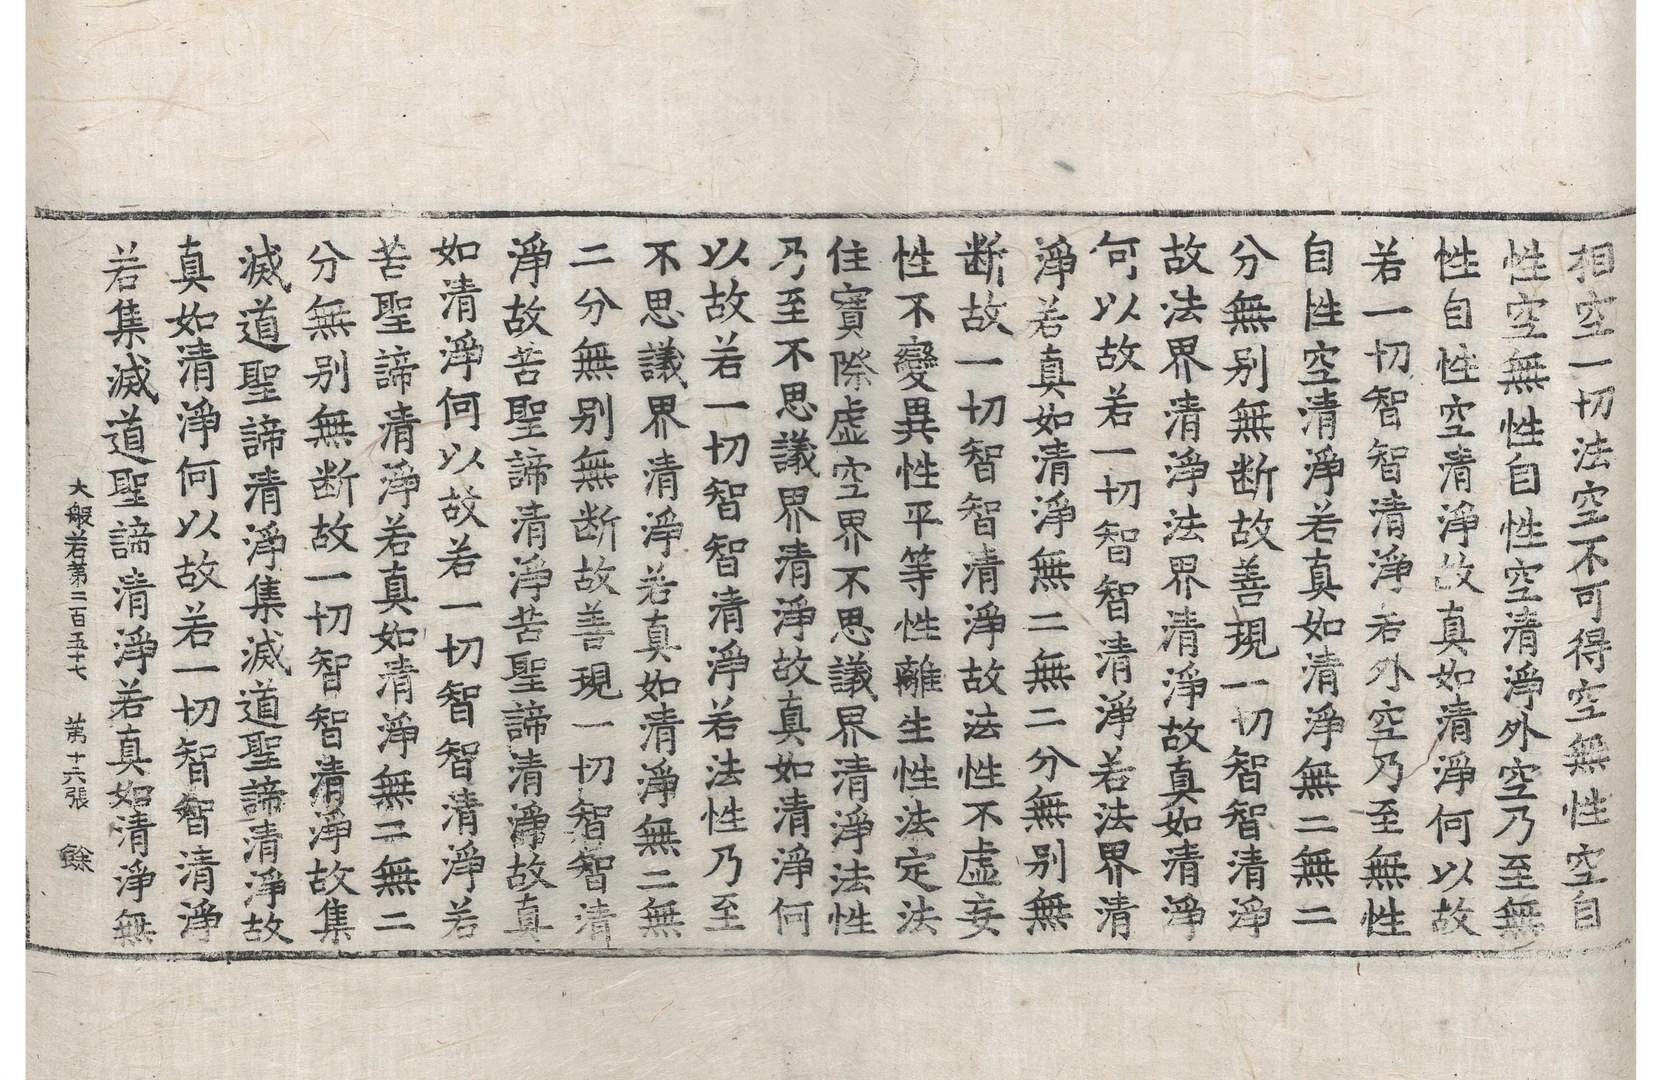 相空一切法空不可得空無性空自
性空無性自性空清淨外空乃至無
性自性空清淨故真如清淨何以故
若一切智智清淨若外空乃至無性
自性空清淨若真如清淨無二無二
分無别無断故善現一切智智清淨
故法界清淨法界清淨故真如清淨
何以故若一切智智清淨若法界清
淨若真如清淨無二無二分無别無
断故一切智智清淨故法性不虚妄
性不變異性平等性離生性法定法
住實際虚空界不思議界清淨法性
乃至不思議界清淨故真如清淨何
以故若一切智智清淨若法性乃至
不思議界清淨若真如清淨無二無
二分無别無断故善現一切智智清
淨故苦聖諦清淨苦聖諦清淨故真
如清淨何以故若一切智智清淨若
苦聖諦清淨若真如清淨無二無二
分無别無断故一切智智清淨故集
滅道聖諦清淨集滅道聖諦清淨故
真如清淨何以故若一切智智清淨
若集滅道聖諦清淨若真如清淨無
大般若第二百五十七 第十六張 餘